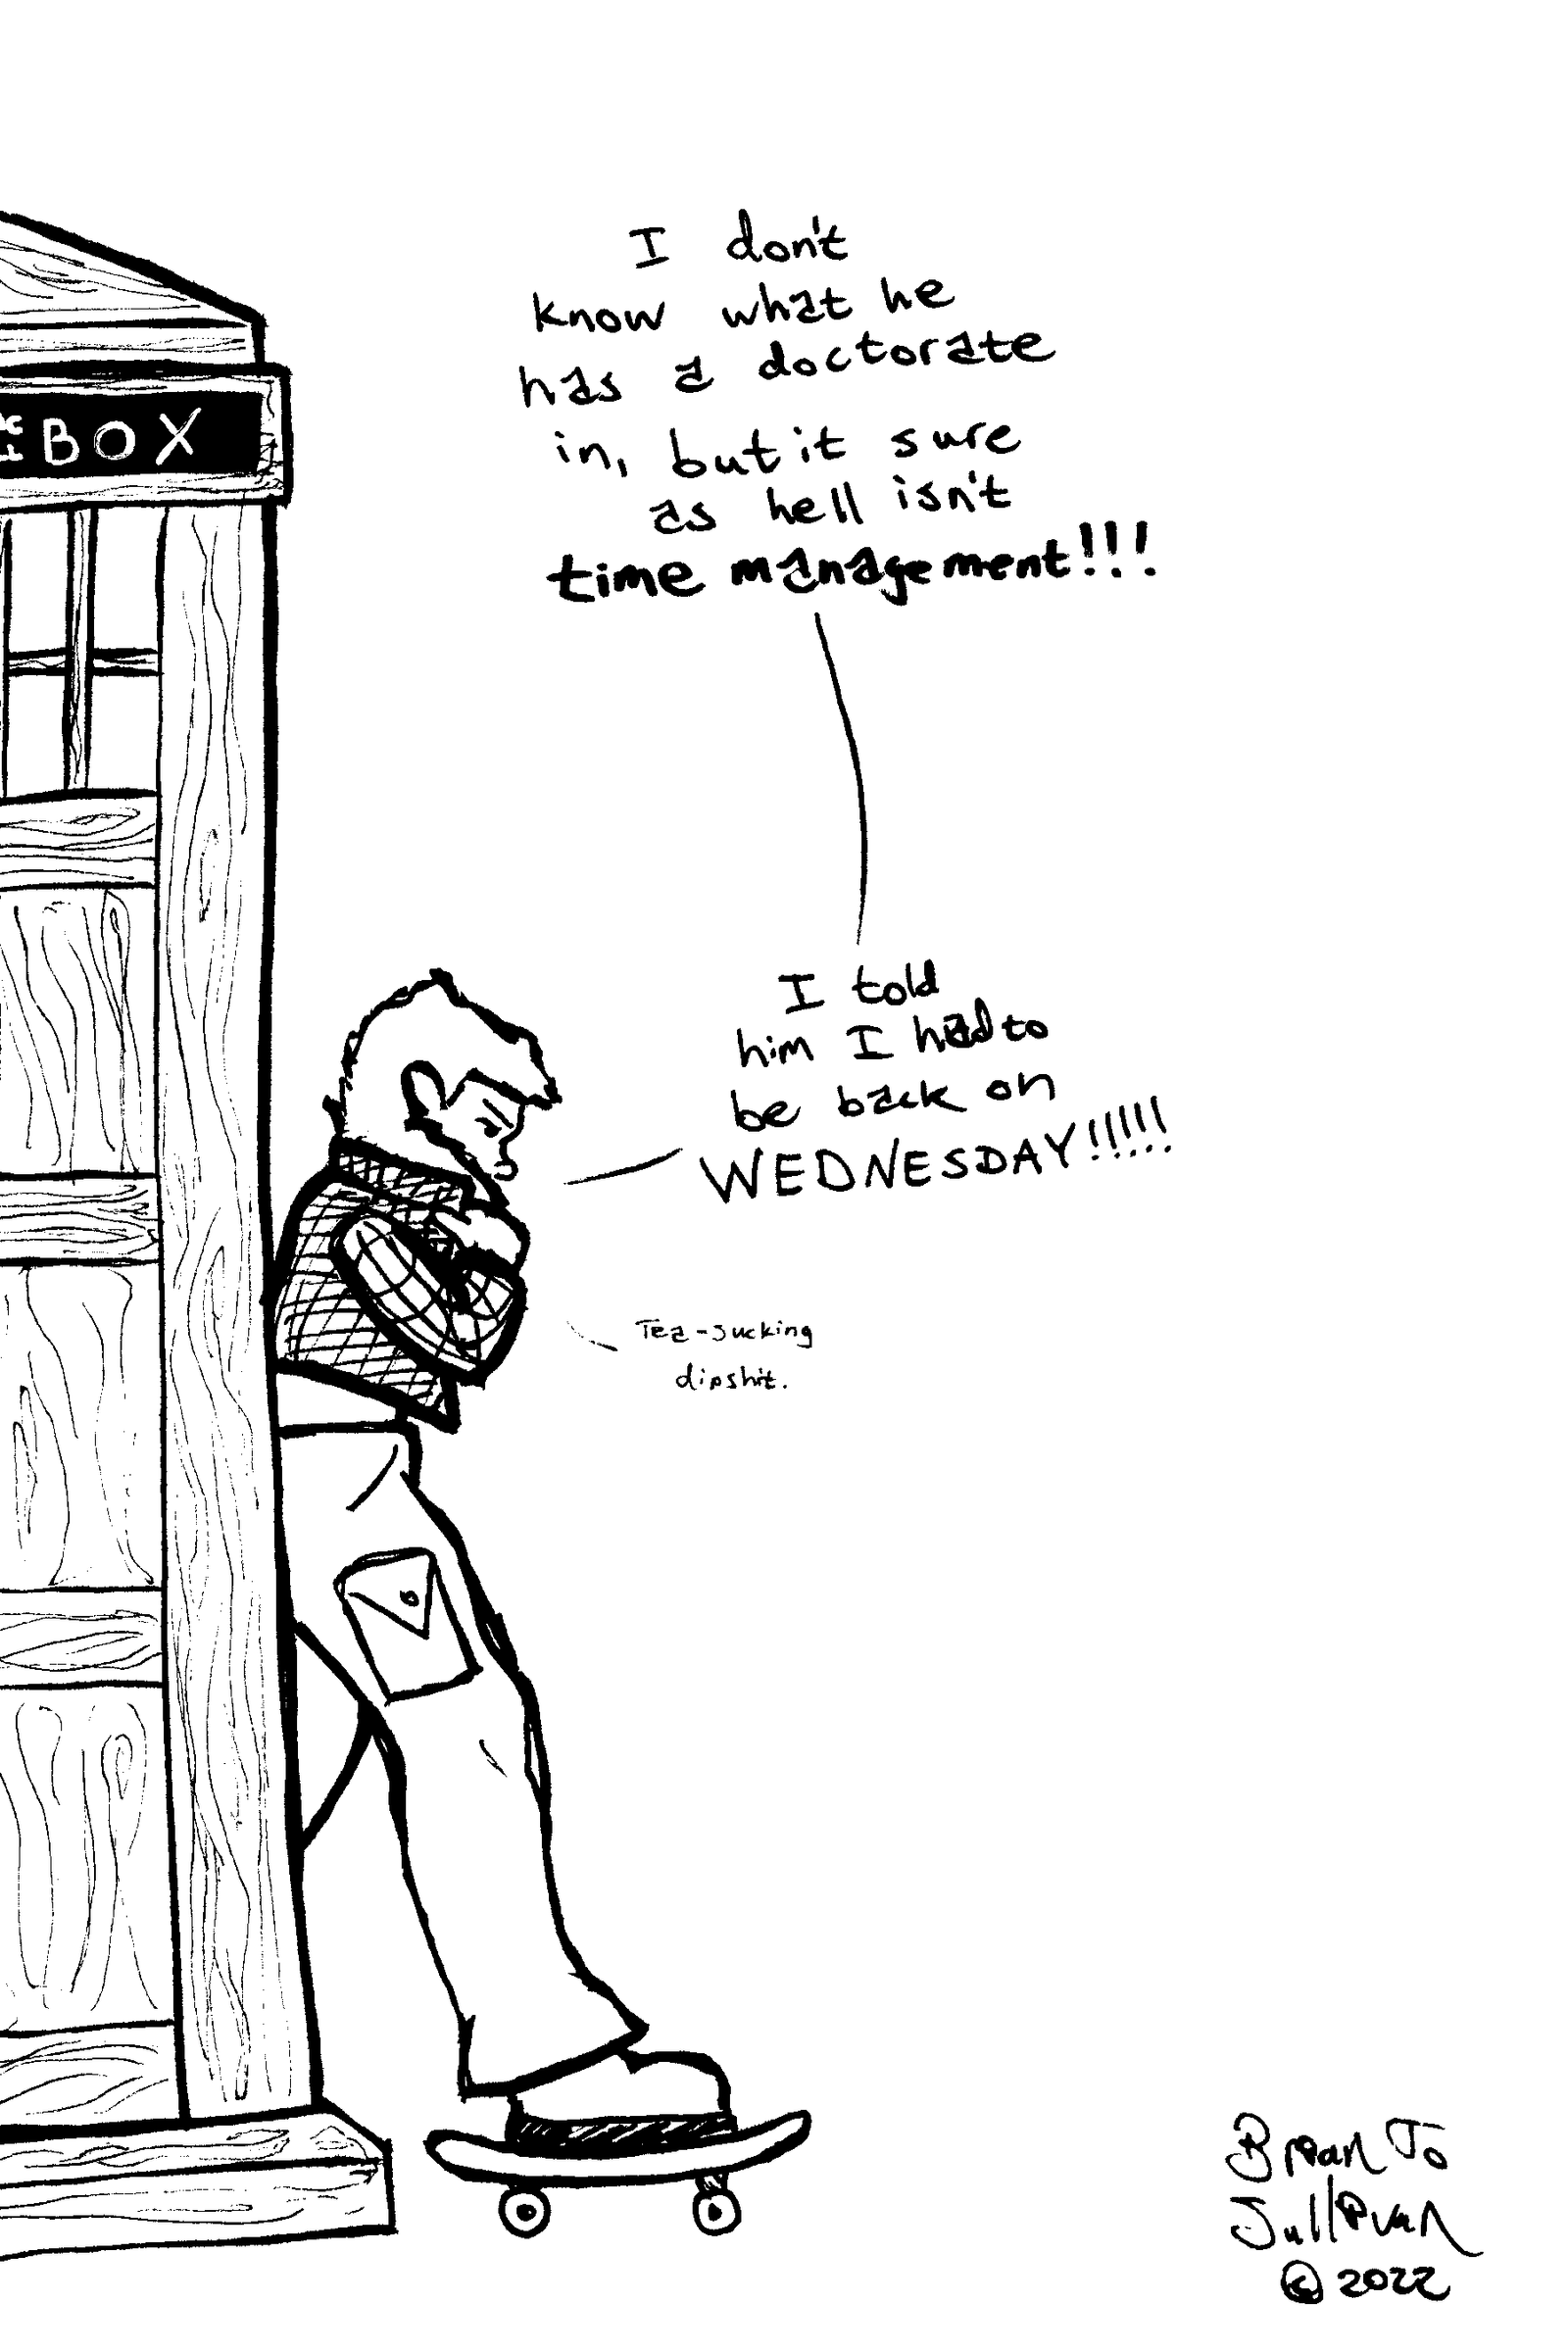 BOX
I don't
know what he
has a doctorate
in, but it sure
as hell isn't
time management!!!
I told
him I had to
be back on
WEDNESDAY!!!!!
Tea-sucking
dipshit.
Brian Jo
Sullivan
© 2022